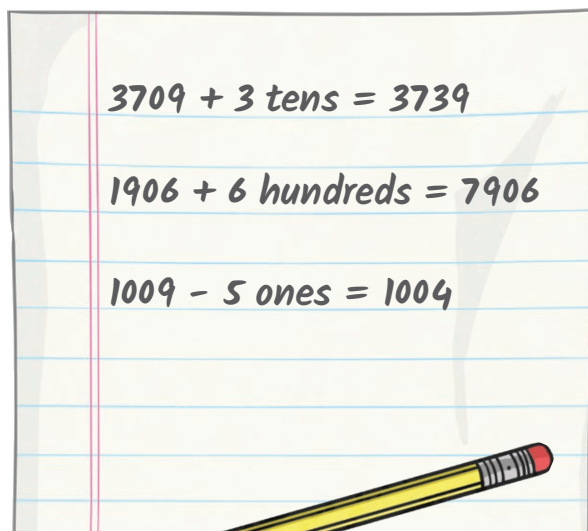 3709 + 3 tens = 3739
1906 + 6 hundreds = 7906
1009 - 5 ones = 1004